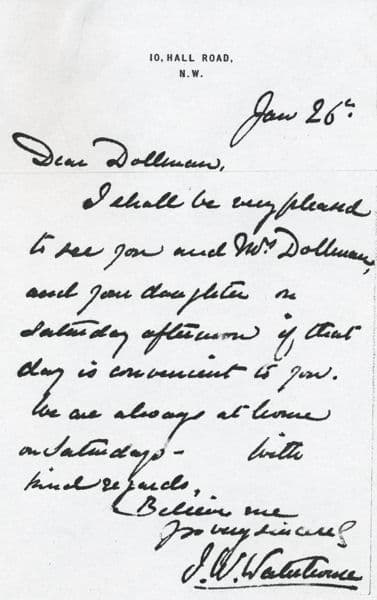 10, HALL ROAD,
N.W.
Jan 26th.
Dear Dollman,
I shall be very pleased
to see you and Mrs Dollman,
and your daughter on
Saturday afternoon if that
day is convenient to you.
We are always at home
on Saturdays - With
kind regards,
Believe me
yrs very sincerely
J. W. Waterhouse